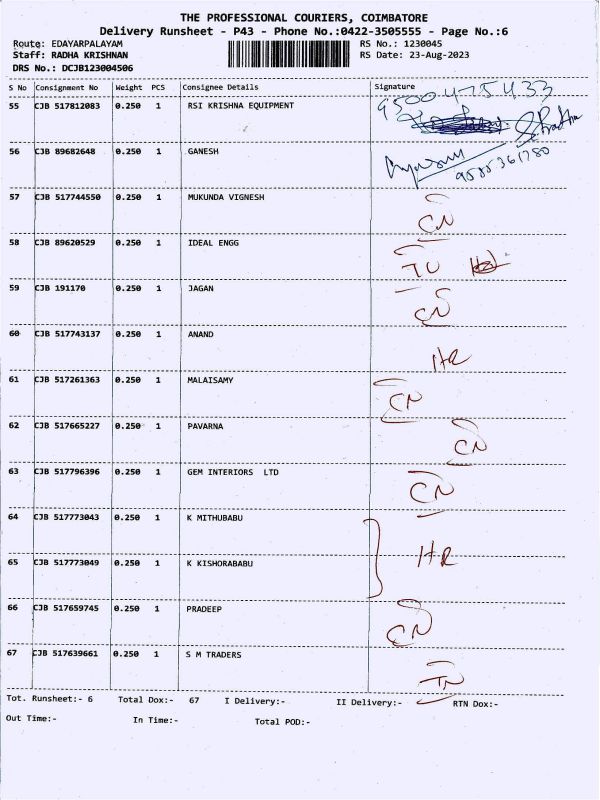 THE PROFESSIONAL COURIERS, COIMBATORE
Delivery Runsheet - P43 - Phone No.:0422-3505555 - Page No.:6
Route: EDAYARPALAYAM RS No.: 1230045
Staff: RADHA KRISHNAN RS Date: 23-Aug-2023
DRS No.: DCJB123004506
S No Consignment No Weight PCS Consignee Details Signature
55 CJB 517812083 0.250 1 RSI KRISHNA EQUIPMENT 9500475433
56 CJB 89682648 0.250 1 GANESH 9585361780
57 CJB 517744550 0.250 1 MUKUNDA VIGNESH CN
58 CJB 89620529 0.250 1 IDEAL ENGG TU
59 CJB 191170 0.250 1 JAGAN CN
60 CJB 517743137 0.250 1 ANAND HR
61 CJB 517261363 0.250 1 MALAISAMY CN
62 CJB 517665227 0.250 1 PAVARNA CN
63 CJB 517796396 0.250 1 GEM INTERIORS LTD CN
64 CJB 517773043 0.250 1 K MITHUBABU HR
65 CJB 517773049 0.250 1 K KISHORABABU
66 CJB 517659745 0.250 1 PRADEEP CN
67 CJB 517639661 0.250 1 S M TRADERS TN
Tot. Runsheet:- 6 Total Dox:- 67 I Delivery:- II Delivery:- RTN Dox:-
Out Time:- In Time:- Total POD:-